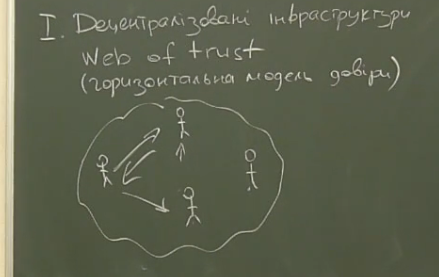 I. Децентралізовані інфраструктури
Web of trust
(горизонтальна модель довіри)